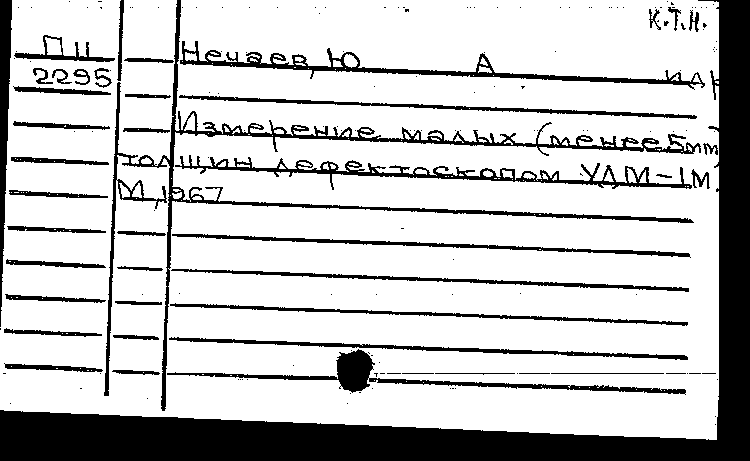 К.Т.Н.
П 11 Нечаев, Ю А и др
2295
Измерение малых (менее 5mm)
толщин дефектоскопом УДМ-1М.
М., 1967